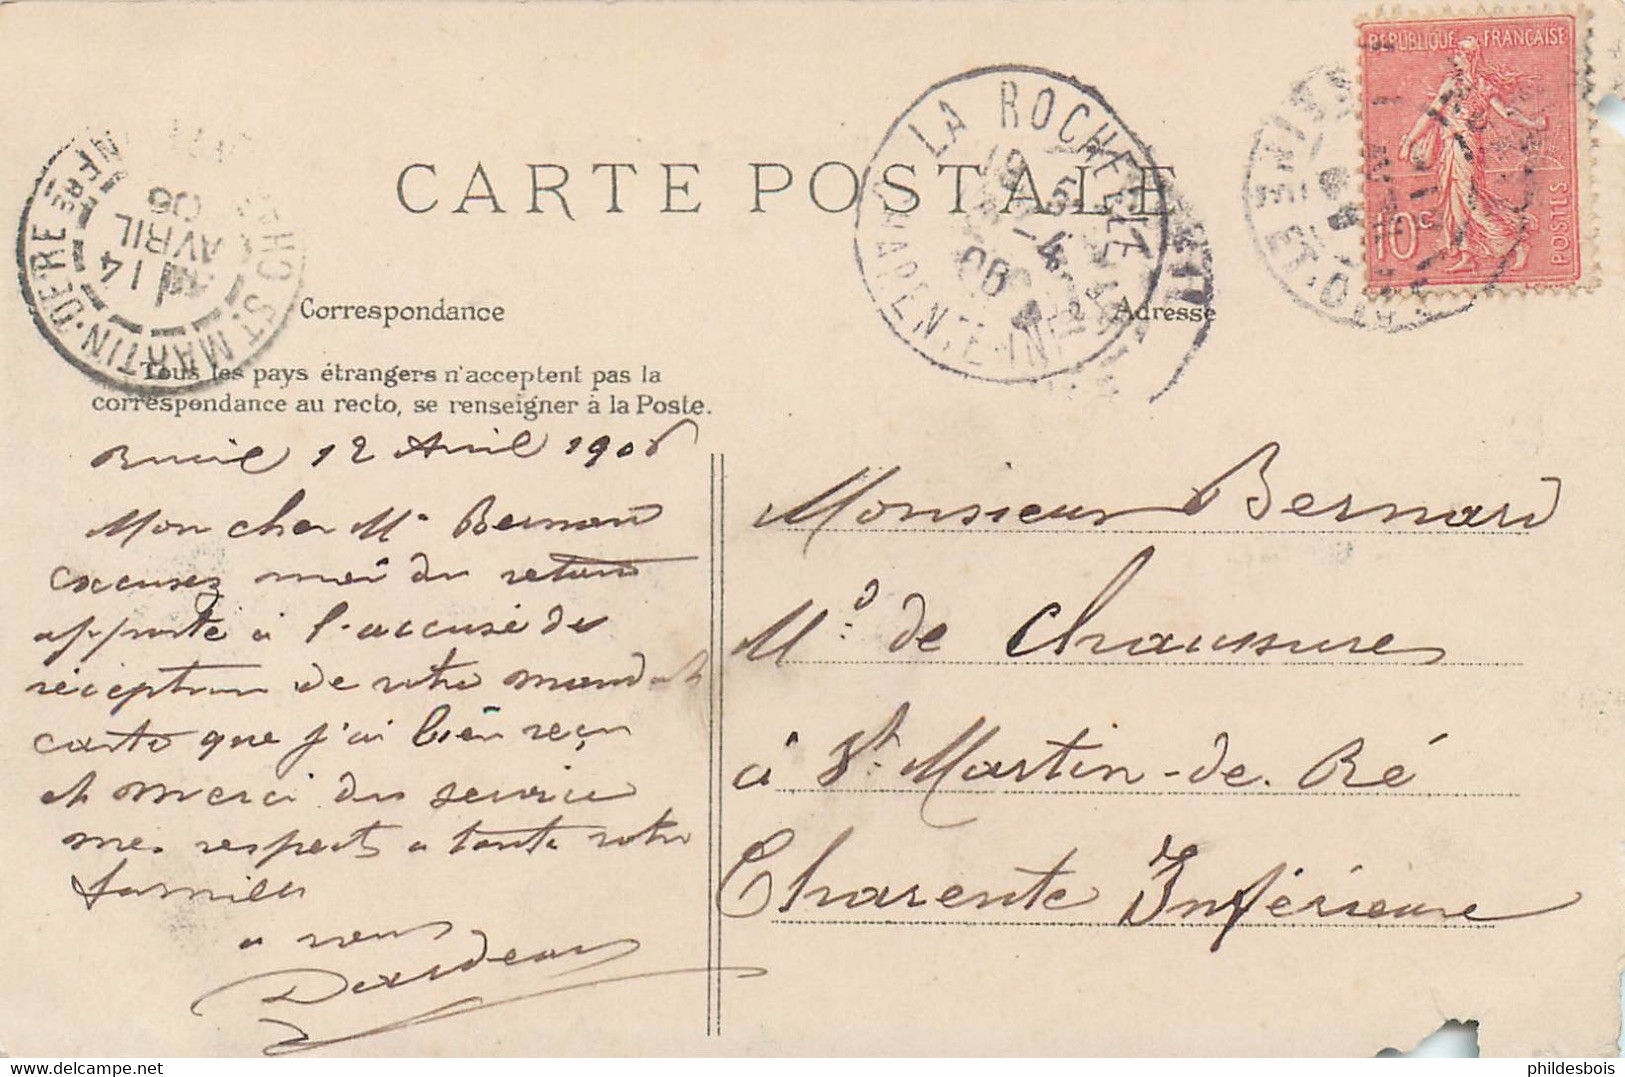 REPUBLIQUE FRANÇAISE
10c POSTES
LA ROCHELLE
19 5
-4
06
CHARENTE-INFRE
SEINE ET OISE
ST MARTIN-DE-RE
14
AVRIL
06
CARTE POSTALE
Correspondance
Adresse
Tous les pays étrangers n'acceptent pas la
correspondance au recto, se renseigner à la Poste.
Rueil 12 Avril 1906
Mon cher Mr Bernard
excusez moi du retard
apporté à l'accusé de
réception de votre mandat
carte que j'ai bien reçu
et merci du service
mes respects a toute votre
famille
a vous
Monsieur Bernard
Md de Chaussures
à St. Martin-de-Ré
Charente Inférieure
phildesbois